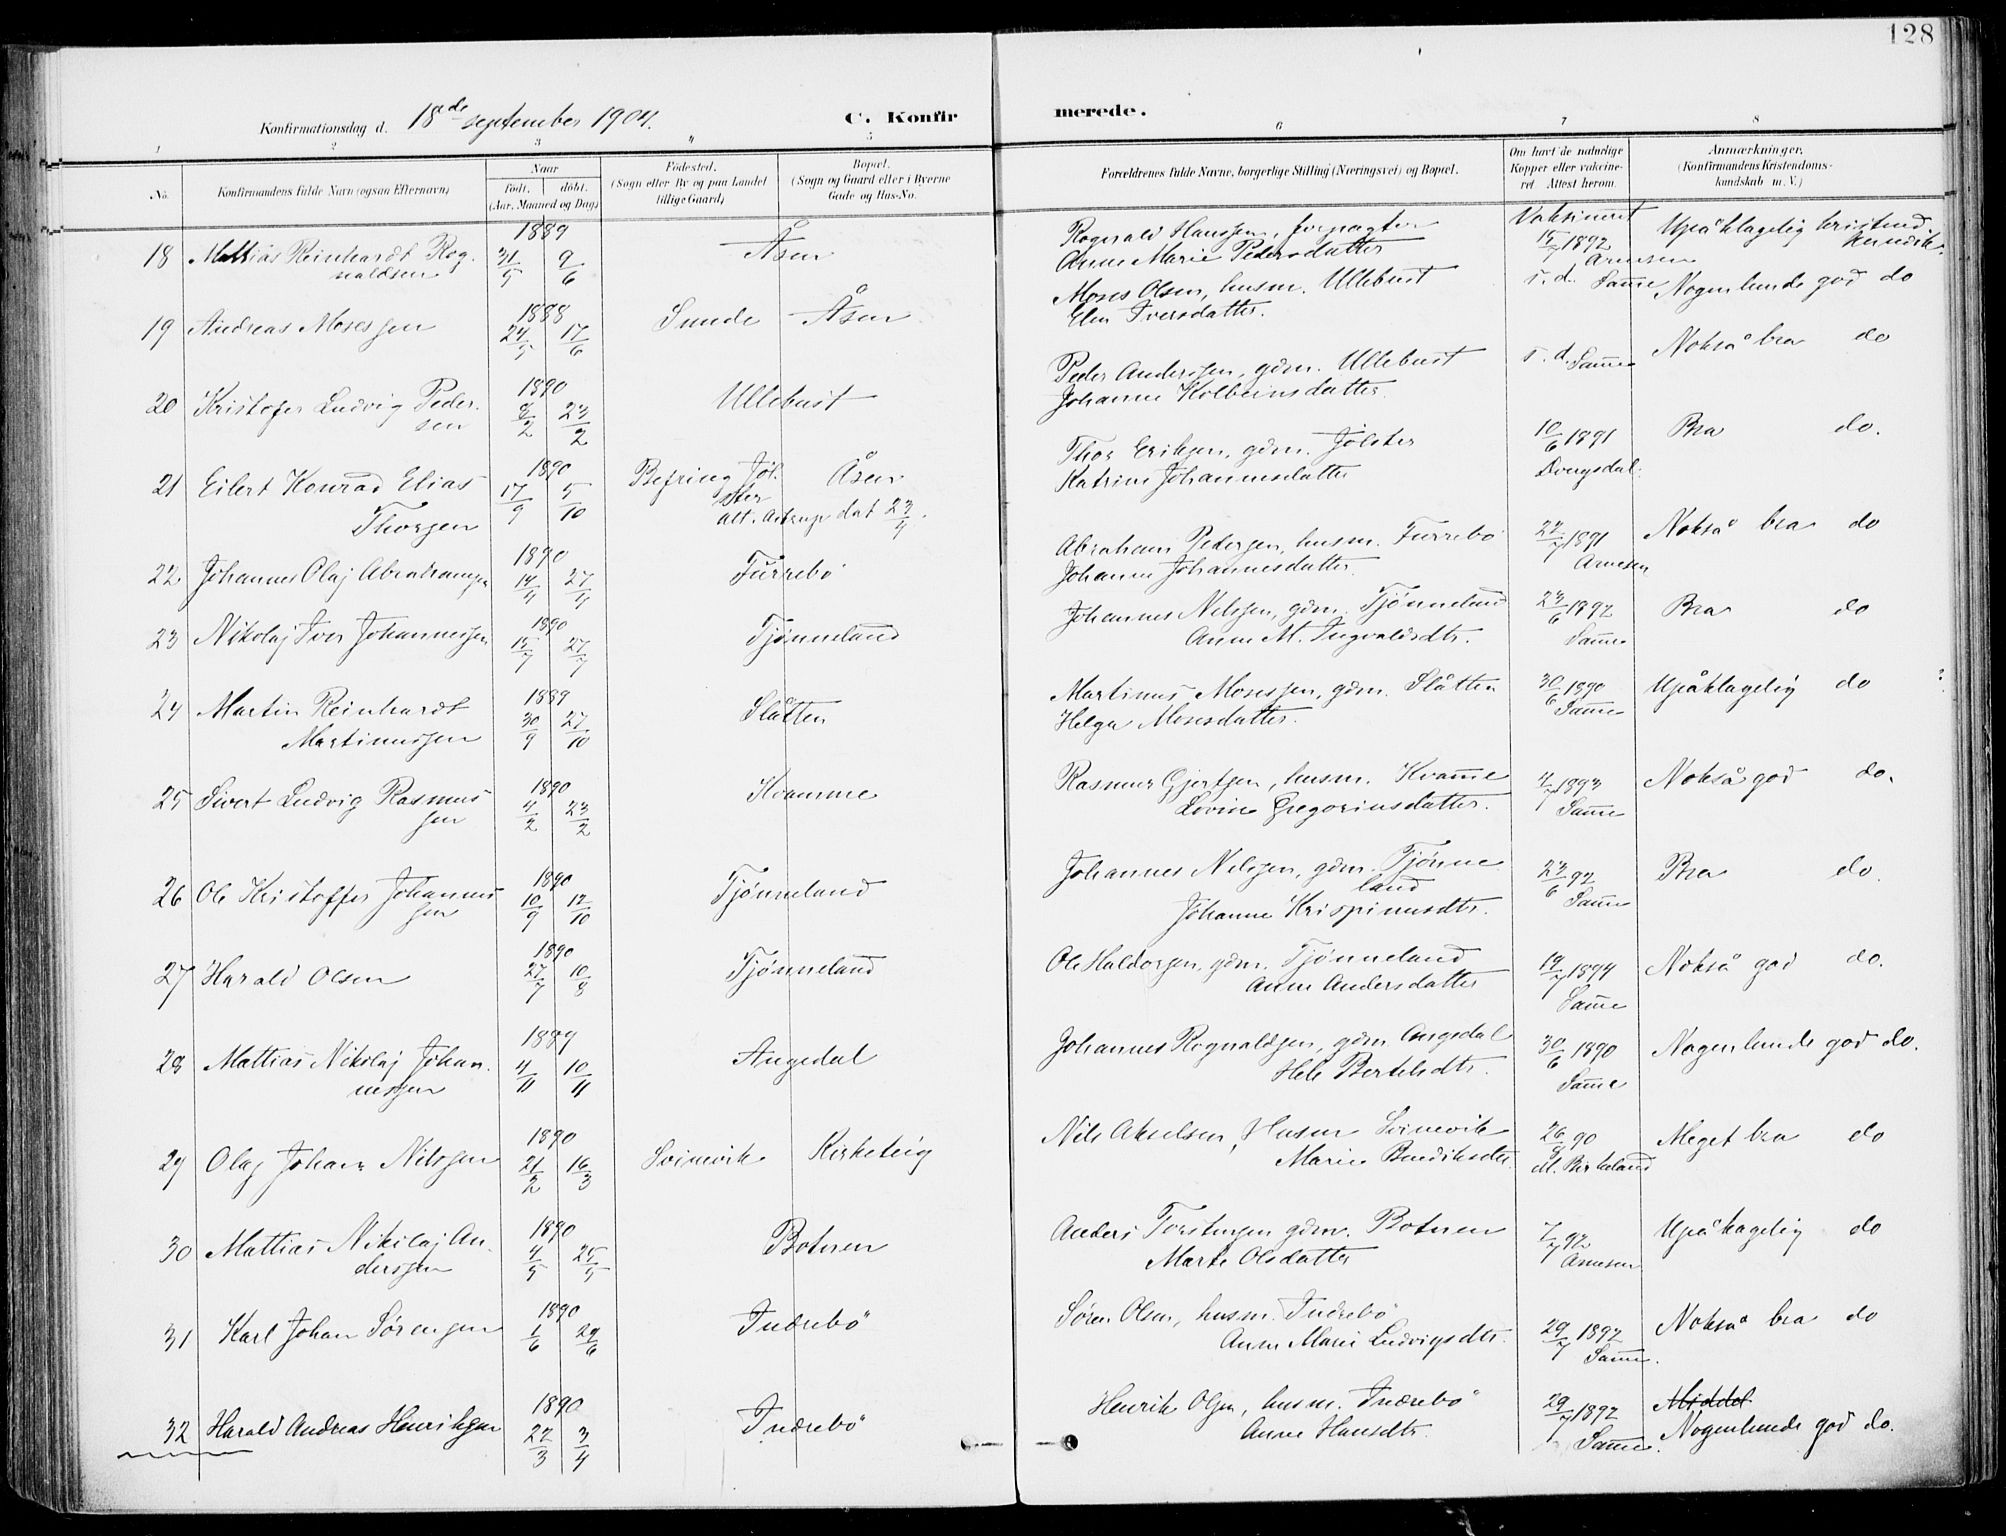 128
Konfirmationsdag d. 18de september 1904.
C. Konfirmerede.
1 2 3 4 5 6 7 8
No.
Konfirmandens fulde Navn (ogsaa Efternavn)
Naar
født. døbt.
(Aar, Maaned og Dag)
Fødested.
(Sogn eller By og paa Landet
tillige Gaard)
Bopæl.
(Sogn og Gaard eller i Byerne
Gade og Hus-No.
Forældrenes fulde Navne, borgerlige Stilling (Næringsvei) og Bopæl.
Om havt de naturlige
Kopper eller vakcine-
ret. Attest herom.
Anmærkninger.
(Konfirmandens Kristendoms-
kundskab m. V.)
18 Mattias Reinhardt Rog-
naldsen
1889
31/5 9/6
Åsen
Rognald Hanssen, forpagter
Anne Marie Pedersdatter
Vaksineret
15/7 1892
Arnesen
Upåklagelig kristend.
kundsk.
19 Andreas Mosessen
1888
24/5 17/6
Sunde Åsen
Moses Olsen, husm. Ullebust
Elen Iversdatter.
s. d. Samme
Nogenlunde god do
20 Kristofer Ludvig Peder-
sen
1890
8/2 23/2
Ullebust
Peder Anderssen, gdm. Ullebust
Johanne Kolbeinsdatter.
s. d. Samme
Nokså bra do
21 Eilert Konrad Elias
Thorsen
1890
17/9 5/10
Befring Jøl-
ster
Åsen
Att. Astrup dat 23/4.
Thor Eriksen, gdm. Jølster
Katrine Johannesdatter
10/6 1891
Dvergsdal.
Bra do.
22 Johannes Olaj Abrahamsen
1890
14/4 27/4
Furrebø
Abraham Pedersen, husm. Furrebø
Johanne Johannesdatter.
22/7 1891
Arnesen
Nokså bra do
23 Nikolaj Iver Johannessen
1890
15/7 27/7
Tjønneland
Johannes Nilssen, gdm. Tjønneland
Anne M. Ingvaldsdtr.
23/6 1892
Samme
Bra do
24 Martin Reinhardt
Martinussen
1889
30/9 27/10
Slåtten
Martinus Mosessen, gdm. Slåtten
Helga Mosesdatter.
30/6 1890
Samme
Upåklagelig do
25 Sivert Ludvig Rasmus
sen
1890
4/2 23/2
Kvamme
Rasmus Gjertsen, husm. Kvamme
Lovine Gregoriusdatter.
4/7 1893
Samme
Nokså god do.
26 Ole Kristoffer Johannes
sen
1890
10/9 12/10
Tjønneland
Johannes Nilssen, gdm. Tjønne
land
Johanne Krispinusdtr.
23/6 92
Samme
Bra do.
27 Harald Olsen
1890
27/7 10/8
Tjønneland
Ole Haldorsen, gdm. Tjønneland
Anne Andersdatter
19/7 1894
Samme
Nokså god do.
28 Mattias Nikolaj Johan-
nessen
1889
4/11 10/11
Angedal
Johannes Rognaldsen, gdm Angedal
Hele Bertelsdtr.
30/6 1890
Samme
Nogenlunde god do.
29 Olaj Johan Nilssen
1890
21/2 16/3
Svinevik Kirketeig
Nils Akselsen, Husm Svinevik
Marie Bendiksdtr.
26/8 90
M. Birkeland
Meget bra do
30 Mattias Nikolaj An-
derssen
1890
4/5 25/5
Botnen
Anders Torstensen gdm. Botnen
Marte Olsdatter
7/7 92
Arnesen
Upåklagelig do
31 Karl Johan Sørensen
1890
1/6 29/6
Indrebø
Søren Olsen, husm. Indrebø
Anne Marie Ludvigsdtr.
29/7 1892
Samme.
Nokså bra do
32 Harald Andreas Henriksen
1890
22/3 3/4
Indrebø
Henrik Olsen, husm. Indrebø
Anne Hansdtr.
29/7 1892
Samme.
Middel
Nogenlunde god do.